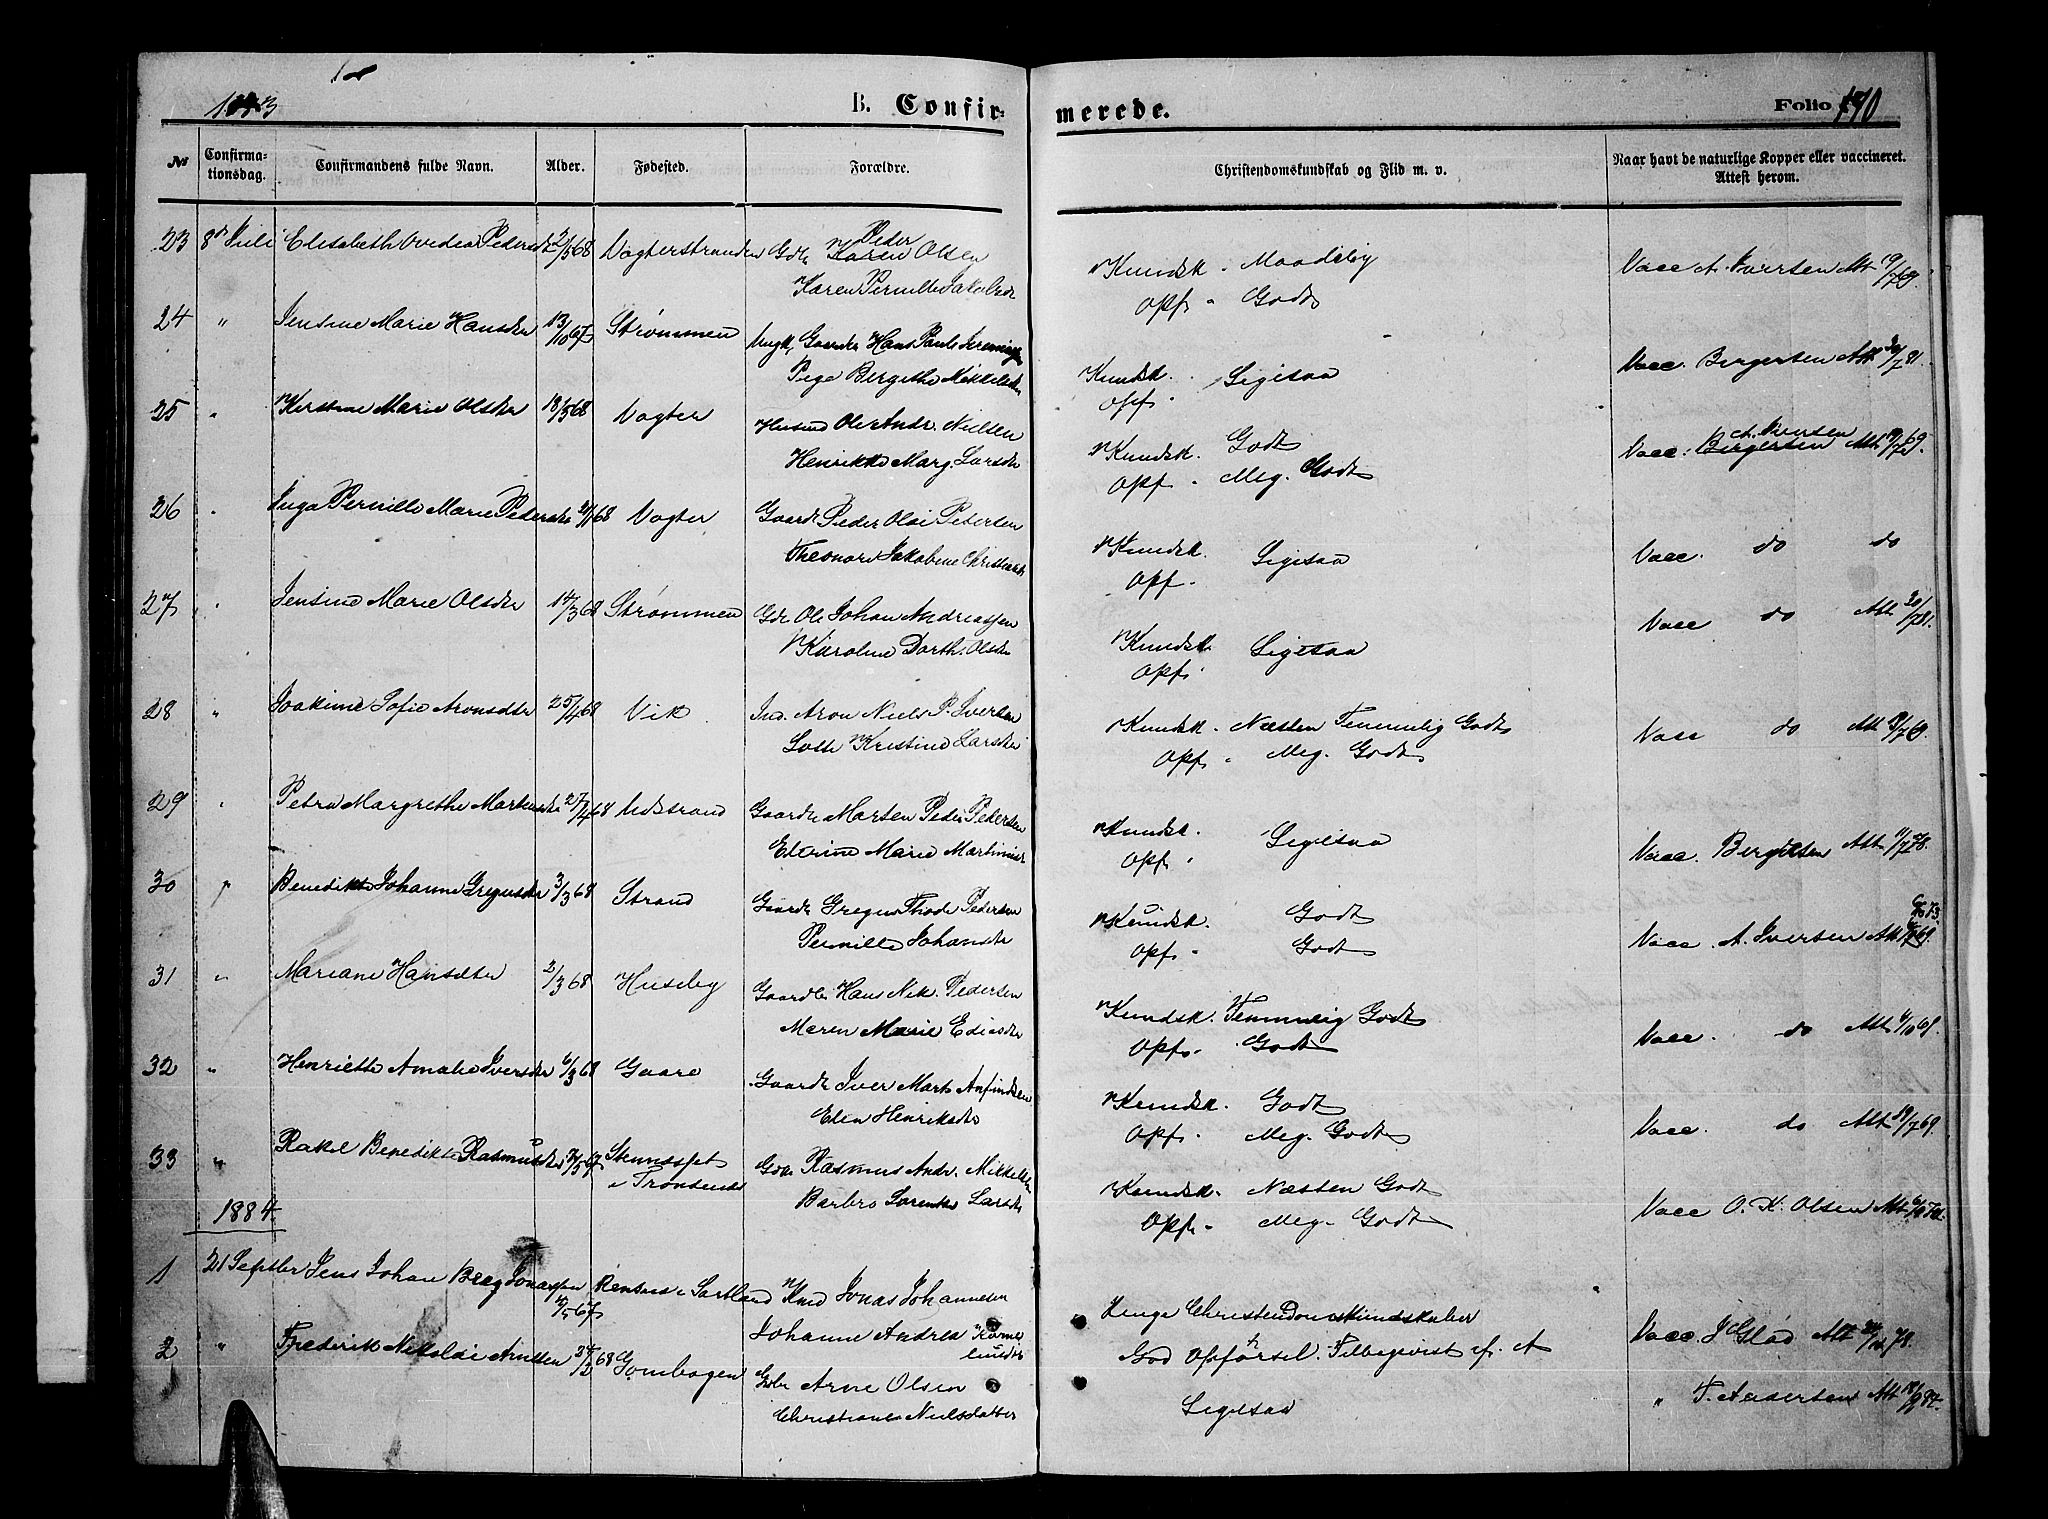 1883
B. Confir-
merede.
Folio 190
No Confirma-tionsdag. Confirmandens fulde Navn. Alder. Fødested. Forældre. Christendomskundskab og Flid m. v. Naar havt de naturlige Kopper eller vaccineret. Attest herom.
23 8de Juli Elisabeth Ovedea Pedersdtr 2/5 68 Vogterstranden Gdbr Peder Olsen
Karen Pernille Jakobsdr
Kundsk. Maadelig
Opf. Godt
Vacc A. Iversen Att 19/7 69.
24 " Jensine Marie Hansdtr 13/10 67 Strømmen Ungk. Gaardbr Hans Paul
Bergithe Mikkelsdtr
Kundsk. Ligesaa
Opf.
Vacc. Bergersen Att 30/7 81.
25 " Kirstine Marie Olsdtr 18/5 68 Vogter Husmd Ole Andr. Nielsen
Henrikke Marg. Larsdtr
Kundsk. Godt
Opf. Meg. Godt
Vacc. A. Iversen Att 19/7 69.
26 " Inga Pernille Marie Pedersdtr 68 Vogter Gaardbr Peder Olai Petersen
Theonore Jakobine Christensdtr
Kundsk. Ligesaa
Opf.
Vacc. do do
27 " Jensine Marie Olsdtr 14/3 68 Strømmen Gdbr Ole Johan Andreassen
Karoline Dorth. Olsdtr
Kundsk. Ligesaa
Opf.
Vacc do Att 30/7 81.
28 " Joakime Sofie Aronsdtr 25/4 68 Vik Ind. Aron Niels P. Iversen
Lotte Kristine Larsdtr
Kundsk. Næsten Temmelig Godt
Opf. Meg. Godt
Vacc do Att 19/7 69.
29 " Petra Margrethe Martensdtr 27/4 68 Udstrand Gaardbr Marten Peder Pedersen
Elerine Marie Martinusdtr
Kundsk. Ligesaa
Opf.
Vacc. Bergersen Att 11/7 78.
30 " Benedikte Johanne Gregusdtr 3/3 68 Strand Gaardbr Gregus Thode Pedersen
Pernille Johansdtr
Kundsk. Godt
Opf. Godt
Vacc A. Iversen Att
31 " Mariane Hansdtr 2/3 68 Huseby Gaardbr Hans Nik. Pedersen
Maren Marie Ediasdtr
Kundsk. Temmelig Godt
Opf. Godt
Vacc. do Att 4/10 69.
32 " Henriette Amalie Iversdtr 6/3 68 Gaare Gaardbr Iver Mart. Anfindsen
Elen Henriksdtr
Kundsk. Godt
Opf. Meg. Godt
Vacc. do Att 19/7 69.
33 " Rakel Benedikte Rasmusdtr 67 Stenusset
i Trondenes
Gdbr Rasmus Andr. Mikkelsen
Barbro Sorentse Larsdtr
Kundsk. Næsten Godt
Opf. Meg. Godt
Vacc O. K. Olsen Att
1884.
1 21 Septbr Jens Johan Berg Jonassen 67 i Sortland Knud Jonas Johannesen
Johanne Andrea
Ringe Christendomskundskaber
God Opførsel.
Vacc. J Glad Att 78.
2 " Frederik Nikolai Arntsen 68 Gombogen Gdbr Arne Olsen
Christiane Nielsdatter
Ligesaa
" T. Andersen Att 18/9 84.